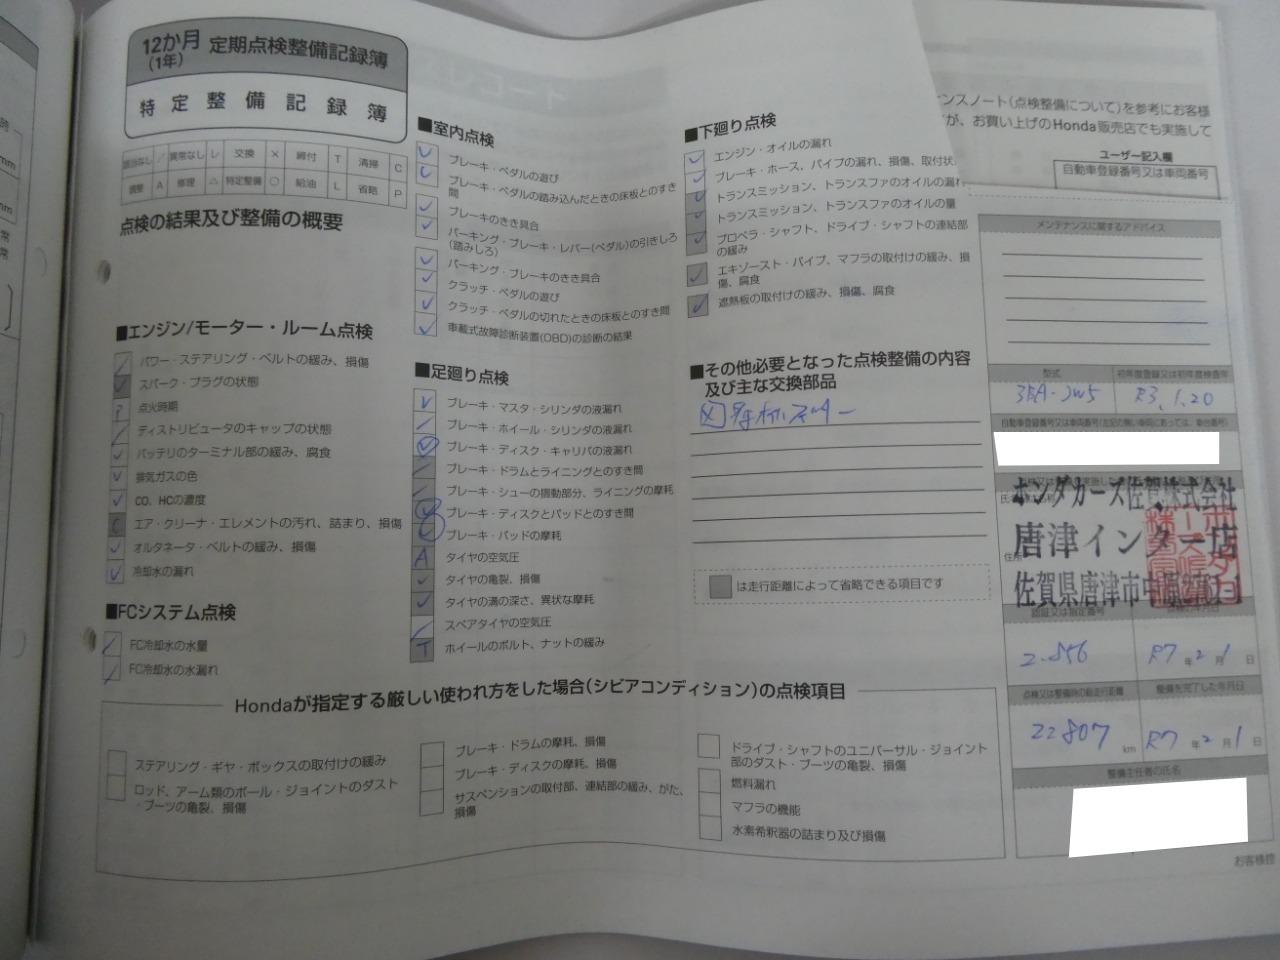 12か月
(1年)
定期点検整備記録簿
特定整備記録簿
該当なし / 異常なし レ 交換 × 締付 T 清掃 C
調整 A 修理 △ 特定整備 ○ 給油 L 省略 P
点検の結果及び整備の概要
■エンジン/モーター・ルーム点検
パワー・ステアリング・ベルトの緩み、損傷
スパーク・プラグの状態
点火時期
ディストリビュータのキャップの状態
バッテリのターミナル部の緩み、腐食
排気ガスの色
CO、HCの濃度
エア・クリーナ・エレメントの汚れ、詰まり、損傷
オルタネータ・ベルトの緩み、損傷
冷却水の漏れ
■FCシステム点検
FC冷却水の水量
FC冷却水の水漏れ
■室内点検
ブレーキ・ペダルの遊び
ブレーキ・ペダルの踏み込んだときの床板とのすき
間
ブレーキのきき具合
パーキング・ブレーキ・レバー(ペダル)の引きしろ
(踏みしろ)
パーキング・ブレーキのきき具合
クラッチ・ペダルの遊び
クラッチ・ペダルの切れたときの床板とのすき間
車載式故障診断装置(OBD)の診断の結果
■足廻り点検
ブレーキ・マスタ・シリンダの液漏れ
ブレーキ・ホイール・シリンダの液漏れ
ブレーキ・ディスク・キャリパの液漏れ
ブレーキ・ドラムとライニングとのすき間
ブレーキ・シューの摺動部分、ライニングの摩耗
ブレーキ・ディスクとパッドとのすき間
ブレーキ・パッドの摩耗
A タイヤの空気圧
タイヤの亀裂、損傷
タイヤの溝の深さ、異状な摩耗
スペアタイヤの空気圧
T ホイールのボルト、ナットの緩み
■下廻り点検
エンジン・オイルの漏れ
ブレーキ・ホース、パイプの漏れ、損傷、取付状
トランスミッション、トランスファのオイルの漏れ
トランスミッション、トランスファのオイルの量
プロペラ・シャフト、ドライブ・シャフトの連結部
の緩み
エキゾースト・パイプ、マフラの取付けの緩み、損
傷、腐食
遮熱板の取付けの緩み、損傷、腐食
■その他必要となった点検整備の内容
及び主な交換部品
は走行距離によって省略できる項目です
Hondaが指定する厳しい使われ方をした場合(シビアコンディション)の点検項目
ステアリング・ギヤ・ボックスの取付けの緩み
ロッド、アーム類のボール・ジョイントのダスト
・ブーツの亀裂、損傷
ブレーキ・ドラムの摩耗、損傷
ブレーキ・ディスクの摩耗、損傷
サスペンションの取付部、連結部の緩み、がた、
損傷
ドライブ・シャフトのユニバーサル・ジョイント
部のダスト・ブーツの亀裂、損傷
燃料漏れ
マフラの機能
水素希釈器の詰まり及び損傷
ンスノート(点検整備について)を参考にお客様
が、お買い上げのHonda販売店でも実施して
ユーザー記入欄
自動車登録番号又は車両番号
メンテナンスに関するアドバイス
型式 初年度登録又は初年度検査年
3BA-JW5 R3.1.20
ホンダカーズ佐賀株式会社
唐津インター店
佐賀県唐津市中原
認証又は指定番号
2-856 R7年2月1日
点検又は整備時の総走行距離 整備を完了した年月日
22807 km R7年2月1日
整備主任者の氏名
お客様控